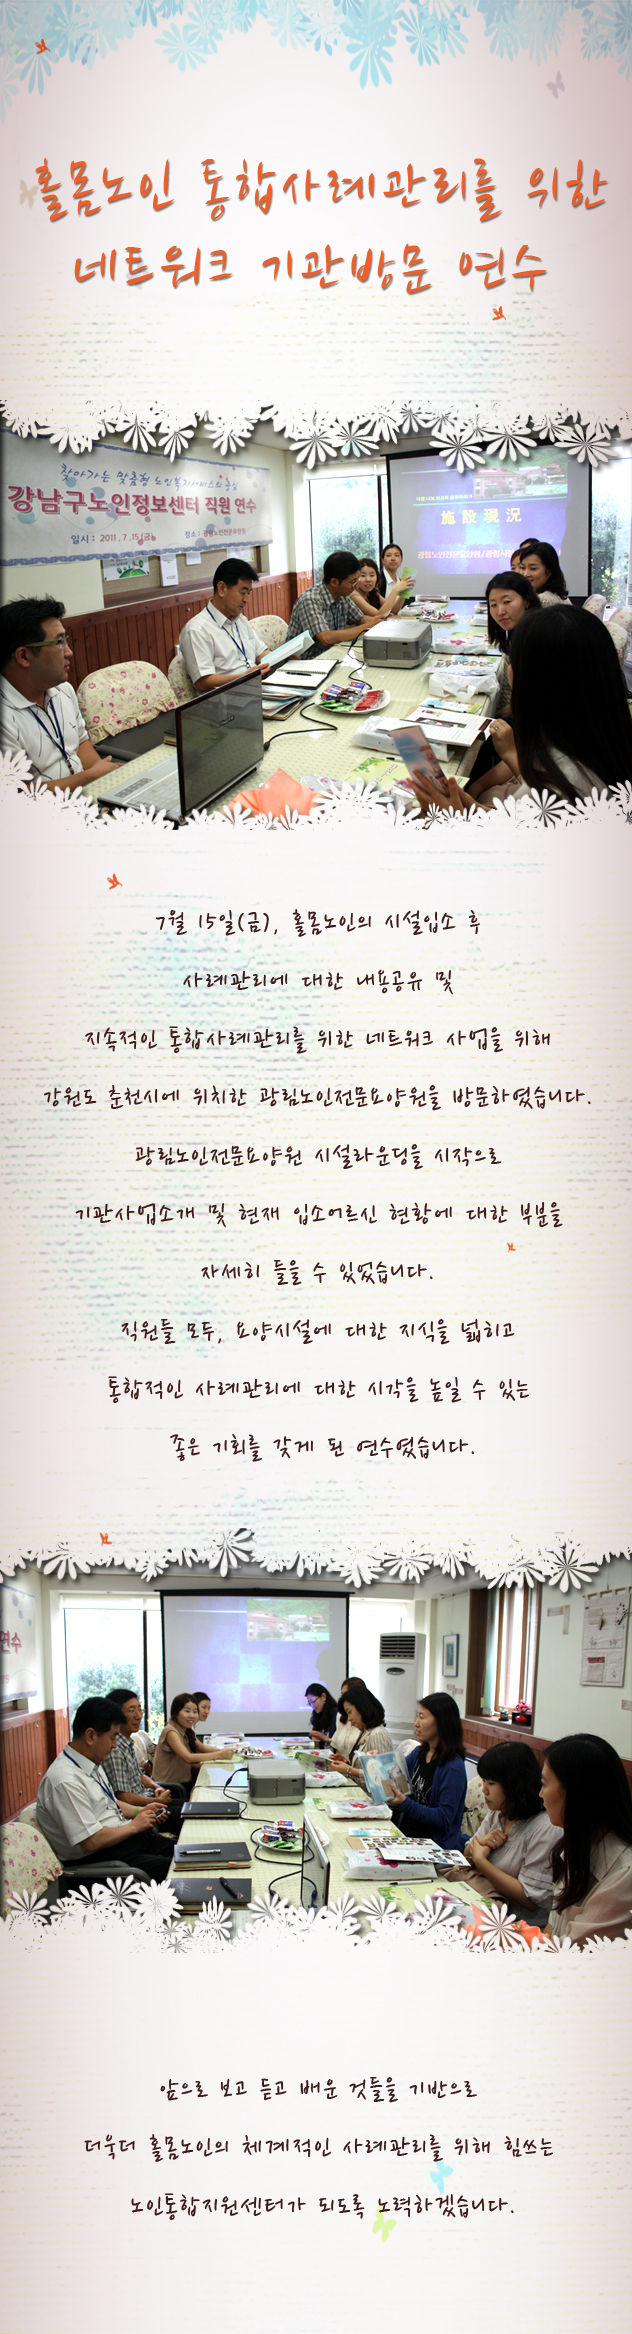 홀몸노인 통합사례관리를 위한
네트워크 기관방문 연수
찾아가는 맞춤형 노인복지서비스의 중심
강남구노인정보센터 직원 연수
일시 : 2011. 7. 15(금) 장소 : 광림노인전문요양원
施設現況
광림노인전문요양원/광림시
7월 15일(금), 홀몸노인의 시설입소 후
사례관리에 대한 내용공유 및
지속적인 통합사례관리를 위한 네트워크 사업을 위해
강원도 춘천시에 위치한 광림노인전문요양원을 방문하였습니다.
광림노인전문요양원 시설라운딩을 시작으로
기관사업소개 및 현재 입소어르신 현황에 대한 부분을
자세히 들을 수 있었습니다.
직원들 모두, 요양시설에 대한 지식을 넓히고
통합적인 사례관리에 대한 시각을 높일 수 있는
좋은 기회를 갖게 된 연수였습니다.
연수
앞으로 보고 듣고 배운 것들을 기반으로
더욱더 홀몸노인의 체계적인 사례관리를 위해 힘쓰는
노인통합지원센터가 되도록 노력하겠습니다.